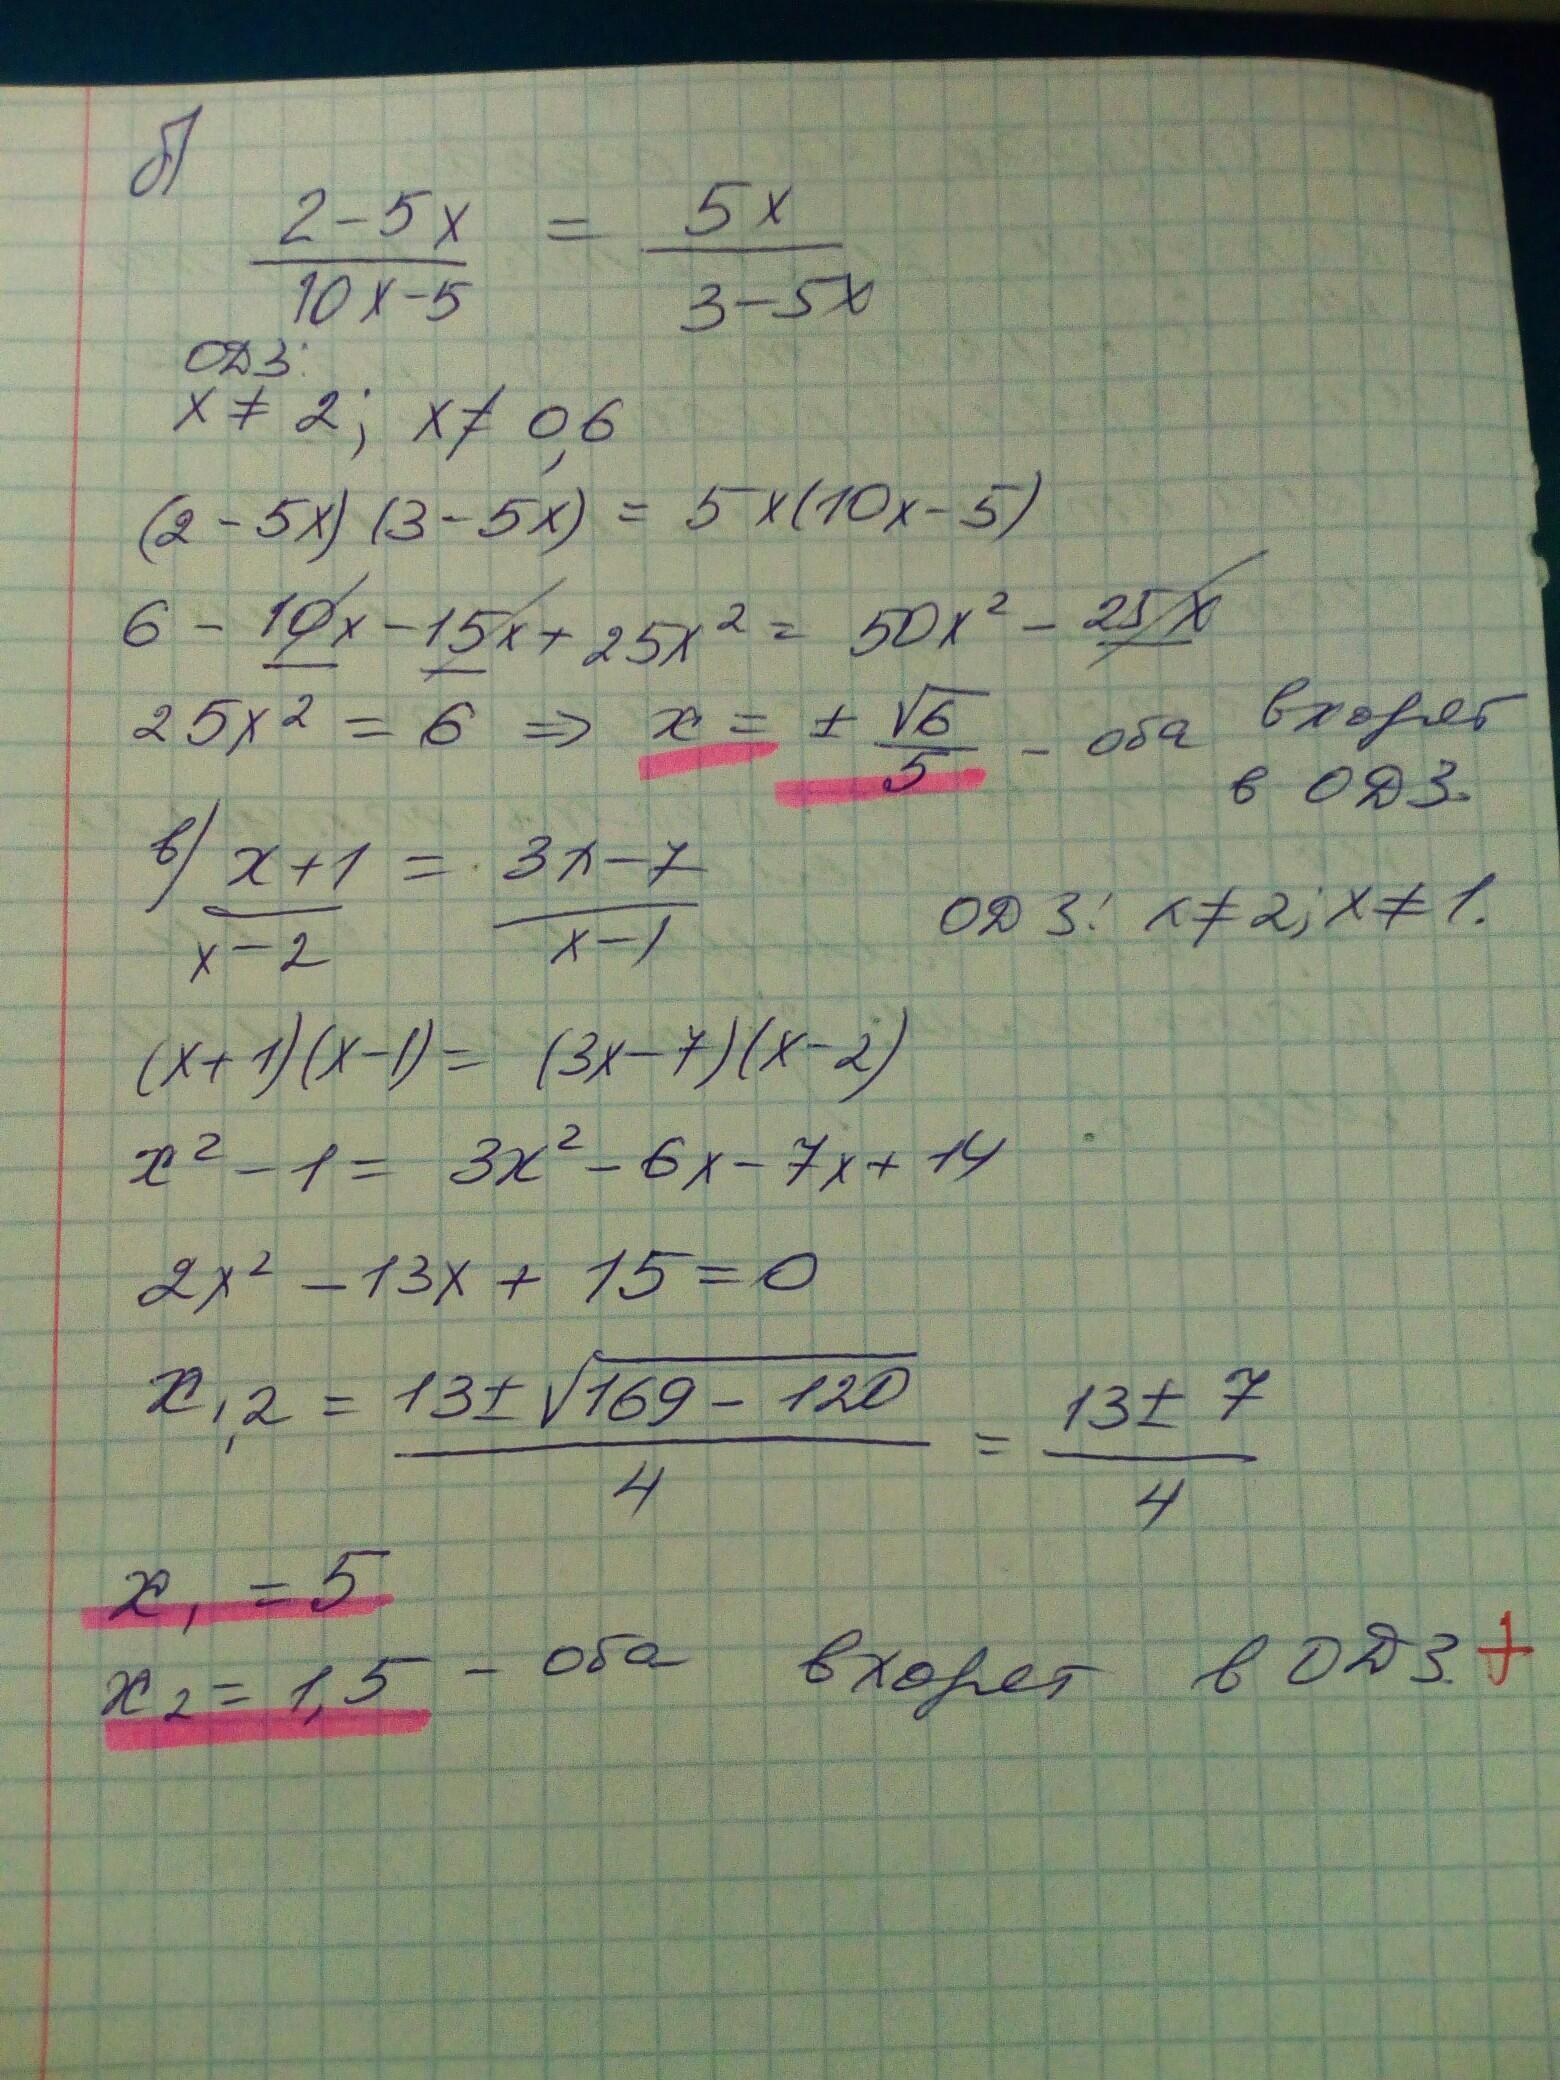 б)
2-5x = 5x
10x-5 3-5x
ОДЗ:
x ≠ 2; x ≠ 0,6
(2-5x)(3-5x) = 5x(10x-5)
6 - 10x - 15x + 25x² = 50x² - 25x
25x² = 6 ⇒ x = ± √6/5 - оба входят
в ОДЗ.
в) x+1 = 3x-7
x-2 x-1
ОДЗ: x≠2; x≠1.
(x+1)(x-1) = (3x-7)(x-2)
x² - 1 = 3x² - 6x - 7x + 14
2x² - 13x + 15 = 0
x1,2 = 13±√169-120 = 13±7
4 4
x1 = 5
x2 = 1,5 - оба входят в ОДЗ. +